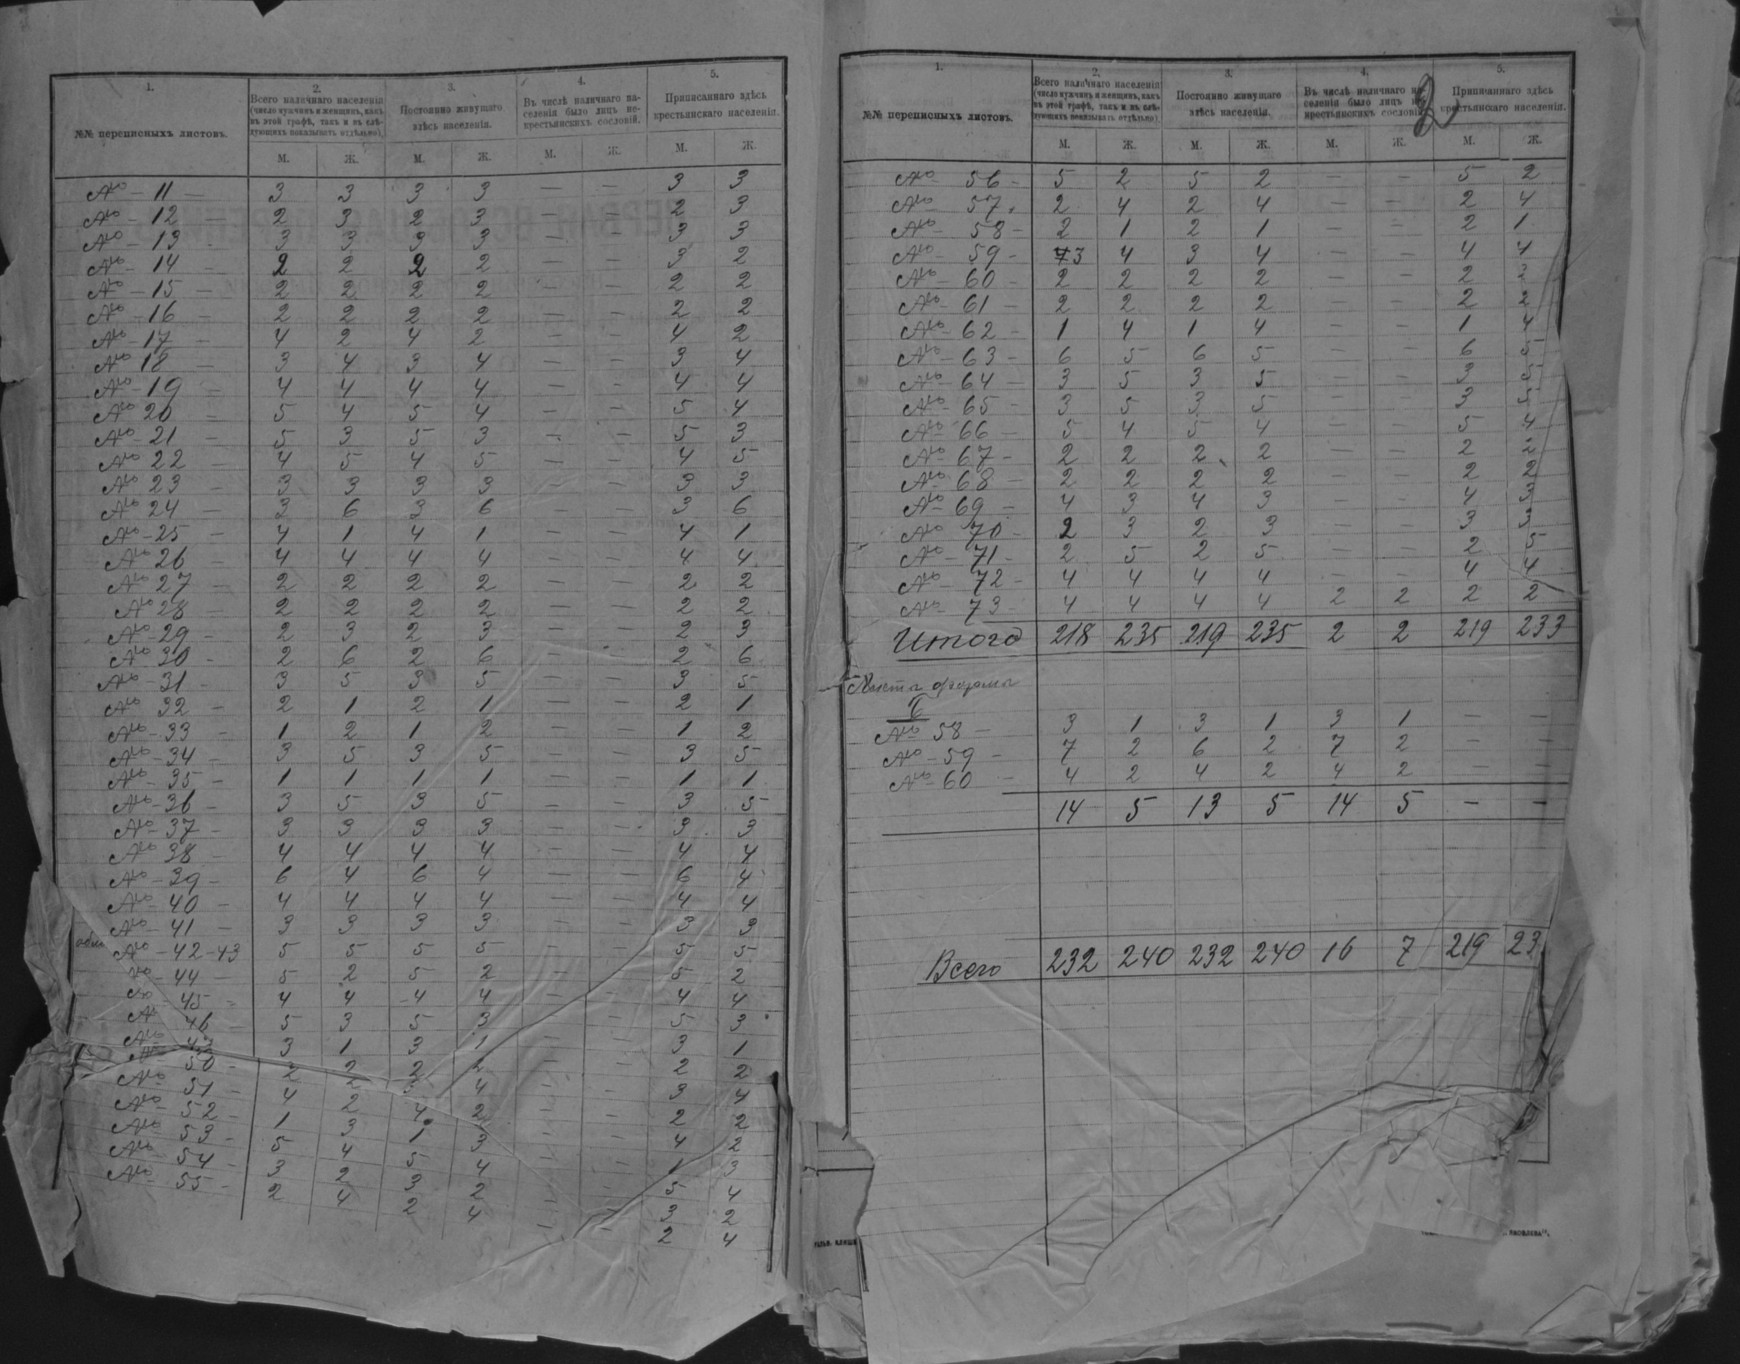 1. 2. 3. 4. 5.
№№ переписныхъ листовъ. Всего наличнаго населенія (число мужчинъ и женщинъ, какъ въ этой графѣ, такъ и въ слѣдующихъ показывать отдѣльно). Постоянно живущаго здѣсь населенія. Въ числѣ наличнаго населенія было лицъ некрестьянскихъ сословій. Приписаннаго здѣсь крестьянскаго населенія.
М. Ж. М. Ж. М. Ж. М. Ж.
№ - 11 - 3 3 3 3 - - 3 3
№ - 12 - 2 3 2 3 - - 2 3
№ - 13 - 3 3 3 3 - - 3 3
№ - 14 - 2 2 2 2 - - 3 2
№ - 15 - 2 2 2 2 - - 2 2
№ - 16 - 2 2 2 2 - - 2 2
№ - 17 - 4 2 4 2 - - 4 2
№ 18 - 3 4 3 4 - - 3 4
№ - 19 - 4 4 4 4 - - 4 4
№ 20 - 5 4 5 4 - - 5 4
№ - 21 - 5 3 5 3 - - 5 3
№ 22 - 4 5 4 5 - - 4 5
№ 23 - 3 3 3 3 - - 3 3
№ 24 - 3 6 3 6 - - 3 6
№ - 25 - 4 1 4 1 - - 4 1
№ 26 - 4 4 4 4 - - 4 4
№ 27 - 2 2 2 2 - - 2 2
№ 28 - 2 2 2 2 - - 2 2
№ - 29 - 2 3 2 3 - - 2 3
№ - 30 - 2 6 2 6 - - 2 6
№ - 31 - 3 5 3 5 - - 3 5
№ 32 - 2 1 2 1 - - 2 1
№ - 33 - 1 2 1 2 - - 1 2
№ - 34 - 3 5 3 5 - - 3 5
№ - 35 - 1 1 1 1 - - 1 1
№ - 36 - 3 5 3 5 - - 3 5
№ - 37 - 3 3 3 3 - - 3 3
№ 38 - 4 4 4 4 - - 4 4
№ - 39 - 6 4 6 4 - - 6 4
№ - 40 - 4 4 4 4 - - 4 4
№ - 41 - 3 3 3 3 - - 3 3
№ - 42-43 5 5 5 5 - - 5 5
№ - 44 - 5 2 5 2 - - 5 2
№ - 45 - 4 4 4 4 - - 4 4
№ 46 - 5 3 5 3 - - 5 3
№ 3 1 3 1 - - 3 1
№ 50 - 2 2 2 2 - - 2 2
№ - 51 - 4 - - 3 4
№ - 52 - 4 2 4 2 - - 2 2
№ - 53 - 1 3 1 3 - - 4 2
№ - 54 - 5 4 5 4 - - 1 3
№ - 55 - 3 2 3 2 - - 5 4
2 4 2 4 - - 3 2
2 4
1. 2. 3. 4. 5.
№№ переписныхъ листовъ. Всего наличнаго населенія (число мужчинъ и женщинъ, какъ въ этой графѣ, такъ и въ слѣдующихъ показывать отдѣльно). Постоянно живущаго здѣсь населенія. Въ числѣ наличнаго населенія было лицъ некрестьянскихъ сословій. Приписаннаго здѣсь крестьянскаго населенія.
2
М. Ж. М. Ж. М. Ж. М. Ж.
№ - 56 - 5 2 5 2 - - 5 2
№ - 57 - 2 4 2 4 - - 2 4
№ - 58 - 2 1 2 1 - - 2 1
№ - 59 - 73 4 3 4 - - 4 4
№ - 60 - 2 2 2 2 - - 2 2
№ - 61 - 2 2 2 2 - - 2 2
№ - 62 - 1 4 1 4 - - 1 4
№ - 63 - 6 5 6 5 - - 6 5
№ - 64 - 3 5 3 5 - - 3 5
№ - 65 - 3 5 3 5 - - 3 5
№ - 66 - 5 4 5 4 - - 5 4
№ - 67 - 2 2 2 2 - - 2 2
№ - 68 - 2 2 2 2 - - 2 2
№ - 69 - 4 3 4 3 - - 4 3
№ 70 - 2 3 2 3 - - 3 3
№ - 71 - 2 5 2 5 - - 2 5
№ - 72 - 4 4 4 4 - - 4 4
№ - 73 - 4 4 4 4 2 2 2 2
Итого 218 235 219 235 2 2 219 233
Листы формы
№ 58 - 3 1 3 1 3 1 - -
№ - 59 - 7 2 6 2 7 2 - -
№ - 60 - 4 2 4 2 4 2 - -
14 5 13 5 14 5 - -
Всего 232 240 232 240 16 7 219 23